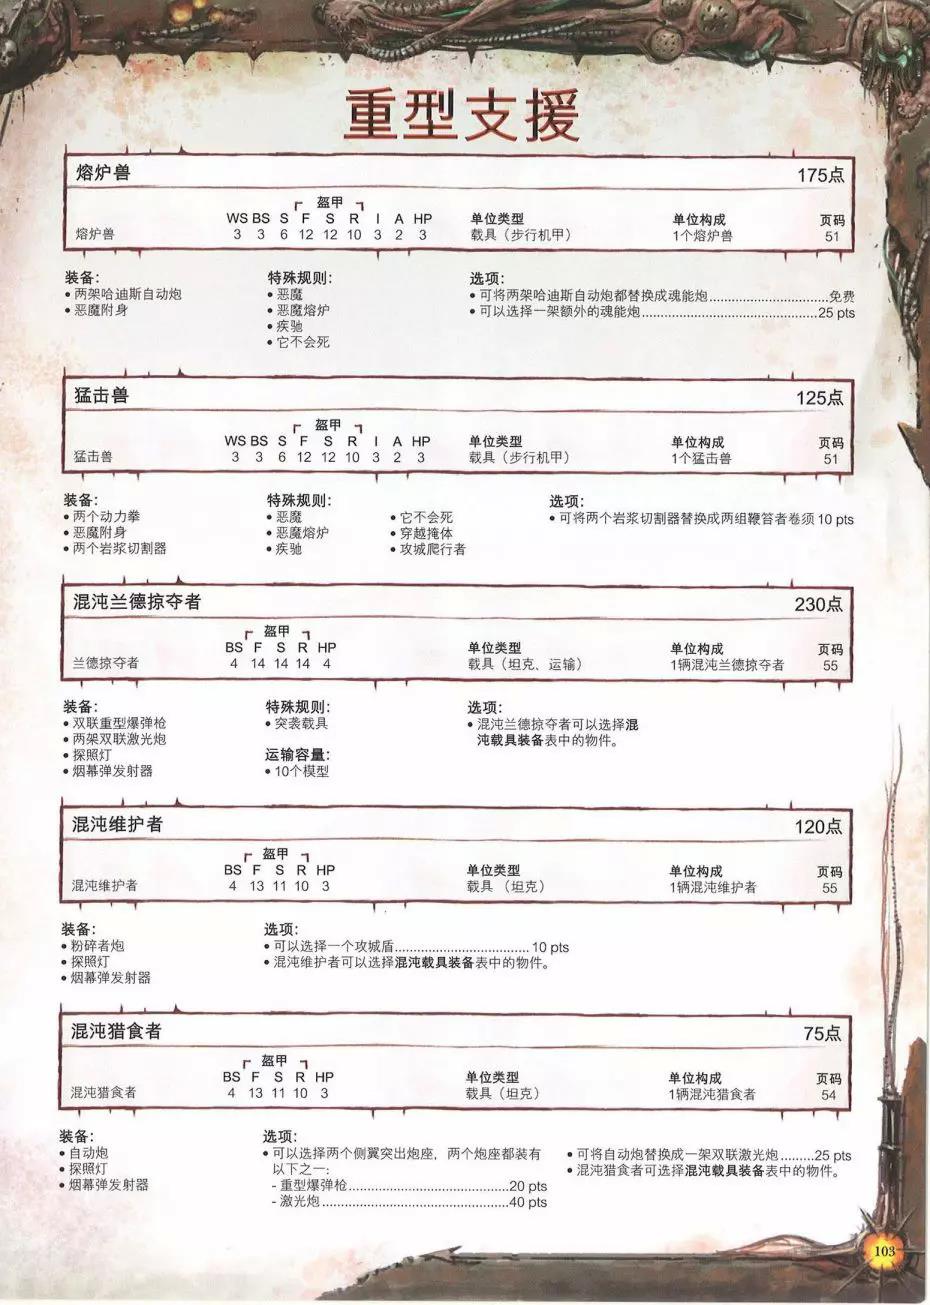 重型支援
熔炉兽 175点
盔甲
WS BS S F S R I A HP 单位类型 单位构成 页码
熔炉兽 3 3 6 12 12 10 3 2 3 载具（步行机甲） 1个熔炉兽 51
装备: 特殊规则: 选项:
• 两架哈迪斯自动炮 • 恶魔 • 可将两架哈迪斯自动炮都替换成魂能炮..............................免费
• 恶魔附身 • 恶魔熔炉 • 可以选择一架额外的魂能炮..............................................25 pts
• 疾驰
• 它不会死
猛击兽 125点
盔甲
WS BS S F S R I A HP 单位类型 单位构成 页码
猛击兽 3 3 6 12 12 10 3 2 3 载具（步行机甲） 1个猛击兽 51
装备: 特殊规则: 选项:
• 两个动力拳 • 恶魔 • 它不会死 • 可将两个岩浆切割器替换成两组鞭笞者卷须 10 pts
• 恶魔附身 • 恶魔熔炉 • 穿越掩体
• 两个岩浆切割器 • 疾驰 • 攻城爬行者
混沌兰德掠夺者 230点
盔甲
BS F S R HP 单位类型 单位构成 页码
兰德掠夺者 4 14 14 14 4 载具（坦克、运输） 1辆混沌兰德掠夺者 55
装备: 特殊规则: 选项:
• 双联重型爆弹枪 • 突袭载具 • 混沌兰德掠夺者可以选择混
• 两架双联激光炮 沌载具装备表中的物件。
• 探照灯 运输容量:
• 烟幕弹发射器 • 10个模型
混沌维护者 120点
盔甲
BS F S R HP 单位类型 单位构成 页码
混沌维护者 4 13 11 10 3 载具 （坦克） 1辆混沌维护者 55
装备: 选项:
• 粉碎者炮 • 可以选择一个攻城盾.................................... 10 pts
• 探照灯 • 混沌维护者可以选择混沌载具装备表中的物件。
• 烟幕弹发射器
混沌猎食者 75点
盔甲
BS F S R HP 单位类型 单位构成 页码
混沌猎食者 4 13 11 10 3 载具（坦克） 1辆混沌猎食者 54
装备: 选项:
• 自动炮 • 可以选择两个侧翼突出炮座，两个炮座都装有 • 可将自动炮替换成一架双联激光炮.........25 pts
• 探照灯 以下之一: • 混沌猎食者可选择混沌载具装备表中的物件。
• 烟幕弹发射器 - 重型爆弹枪..........................................20 pts
- 激光炮.................................................40 pts
103